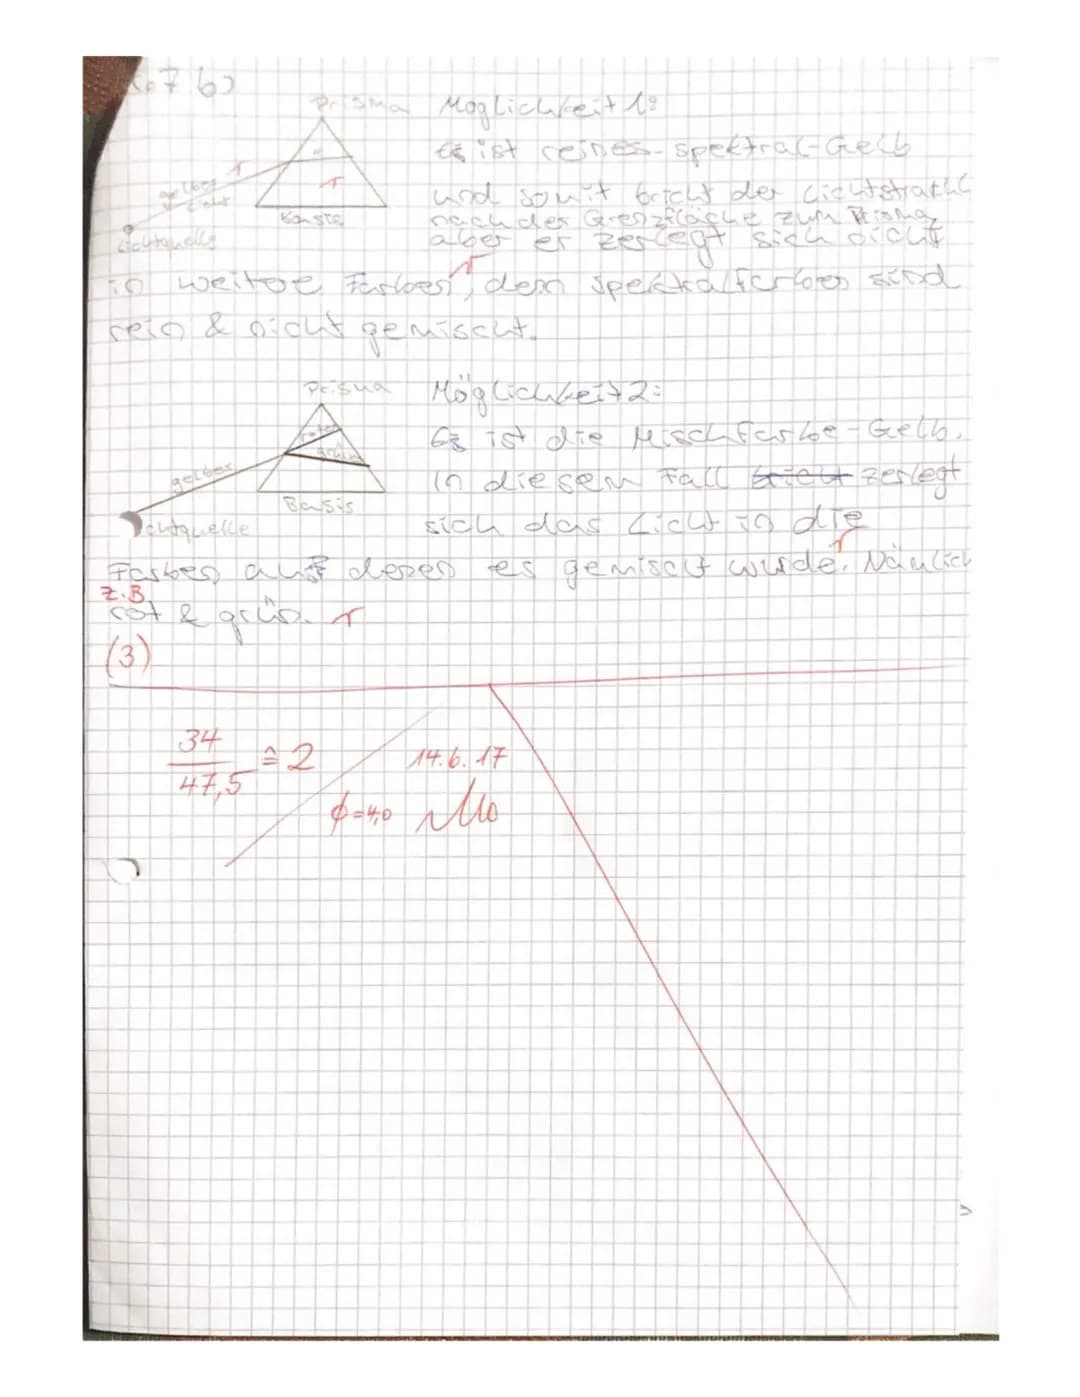 7 b)
Prisma Möglichkeit 1:
Es ist reines-Spektral-Gelb
gelbes Licht und somit bricht der Lichtstrahl
Kante nach der Grenzfläche zum Prisma,
Lichtquelle aber er zerlegt sich nicht
in weitere Farben, denn Spektralfarben sind
rein & nicht gemischt.
Prisma Möglichkeit 2:
rotes Es ist die Mischfarbe-Gelb.
gelbes grünes In diesem Fall bricht zerlegt
Basis sich das Licht in die
chtquelle
Farben aus denen es gemischt wurde. Nämlich
z.B
rot & grün.
(3)
34
47,5 ≙ 2 14.6.17
ϕ=4,0